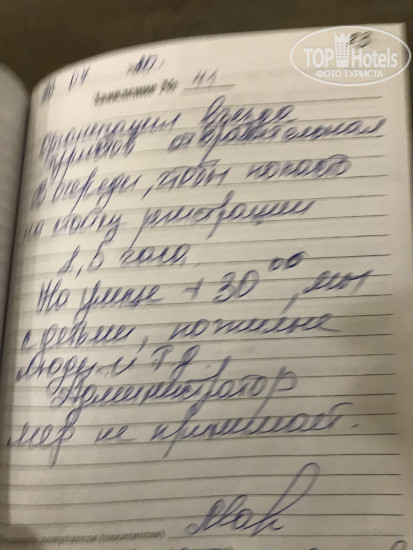 TOP Hotels
ФОТО ТУРИСТА
23
04
Заявление № 41
Организация заезда
туристов отвратительная
В очереди, чтобы попасть
на стойку регистрации
1,5 часа.
На улице +30⁰⁰, мы
с детьми, пожилые
люди и тд
Администратор
мер не принимает.